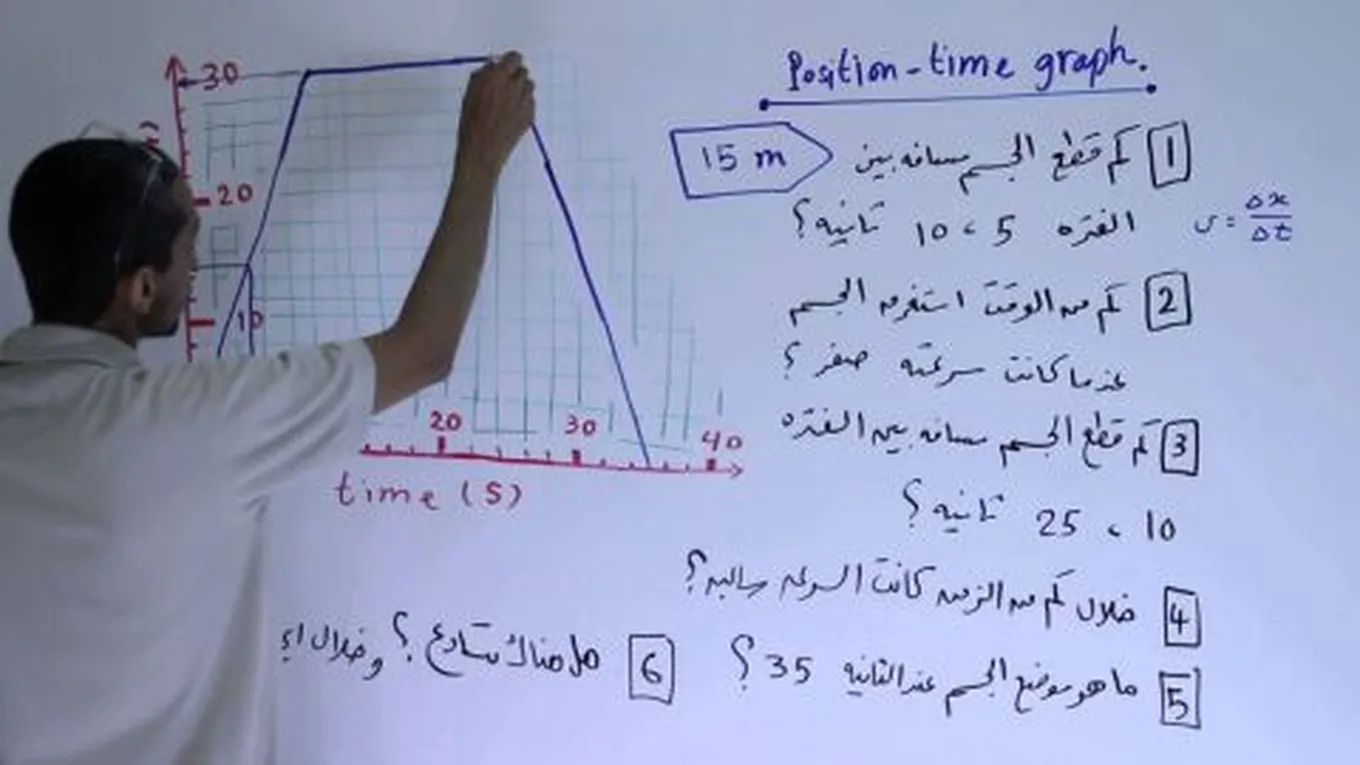 Position-time graph.
30
20
10
20
30
40
time (s)
15 m
1 كم قطع الجسم مسافه بين
الفتره 5 ، 10 ثانيه ؟
v = Δx
Δt
2 كم من الوقت استغرق الجسم
عندما كانت سرعته صفر ؟
3 كم قطع الجسم مسافه بين الفتره
10 ، 25 ثانيه ؟
4 خلال كم من الزمن كانت السرعه سالبه ؟
5 ما هو موضع الجسم عند الثانيه 35 ؟
6 هل هناك تسارع ؟ وخلال اي